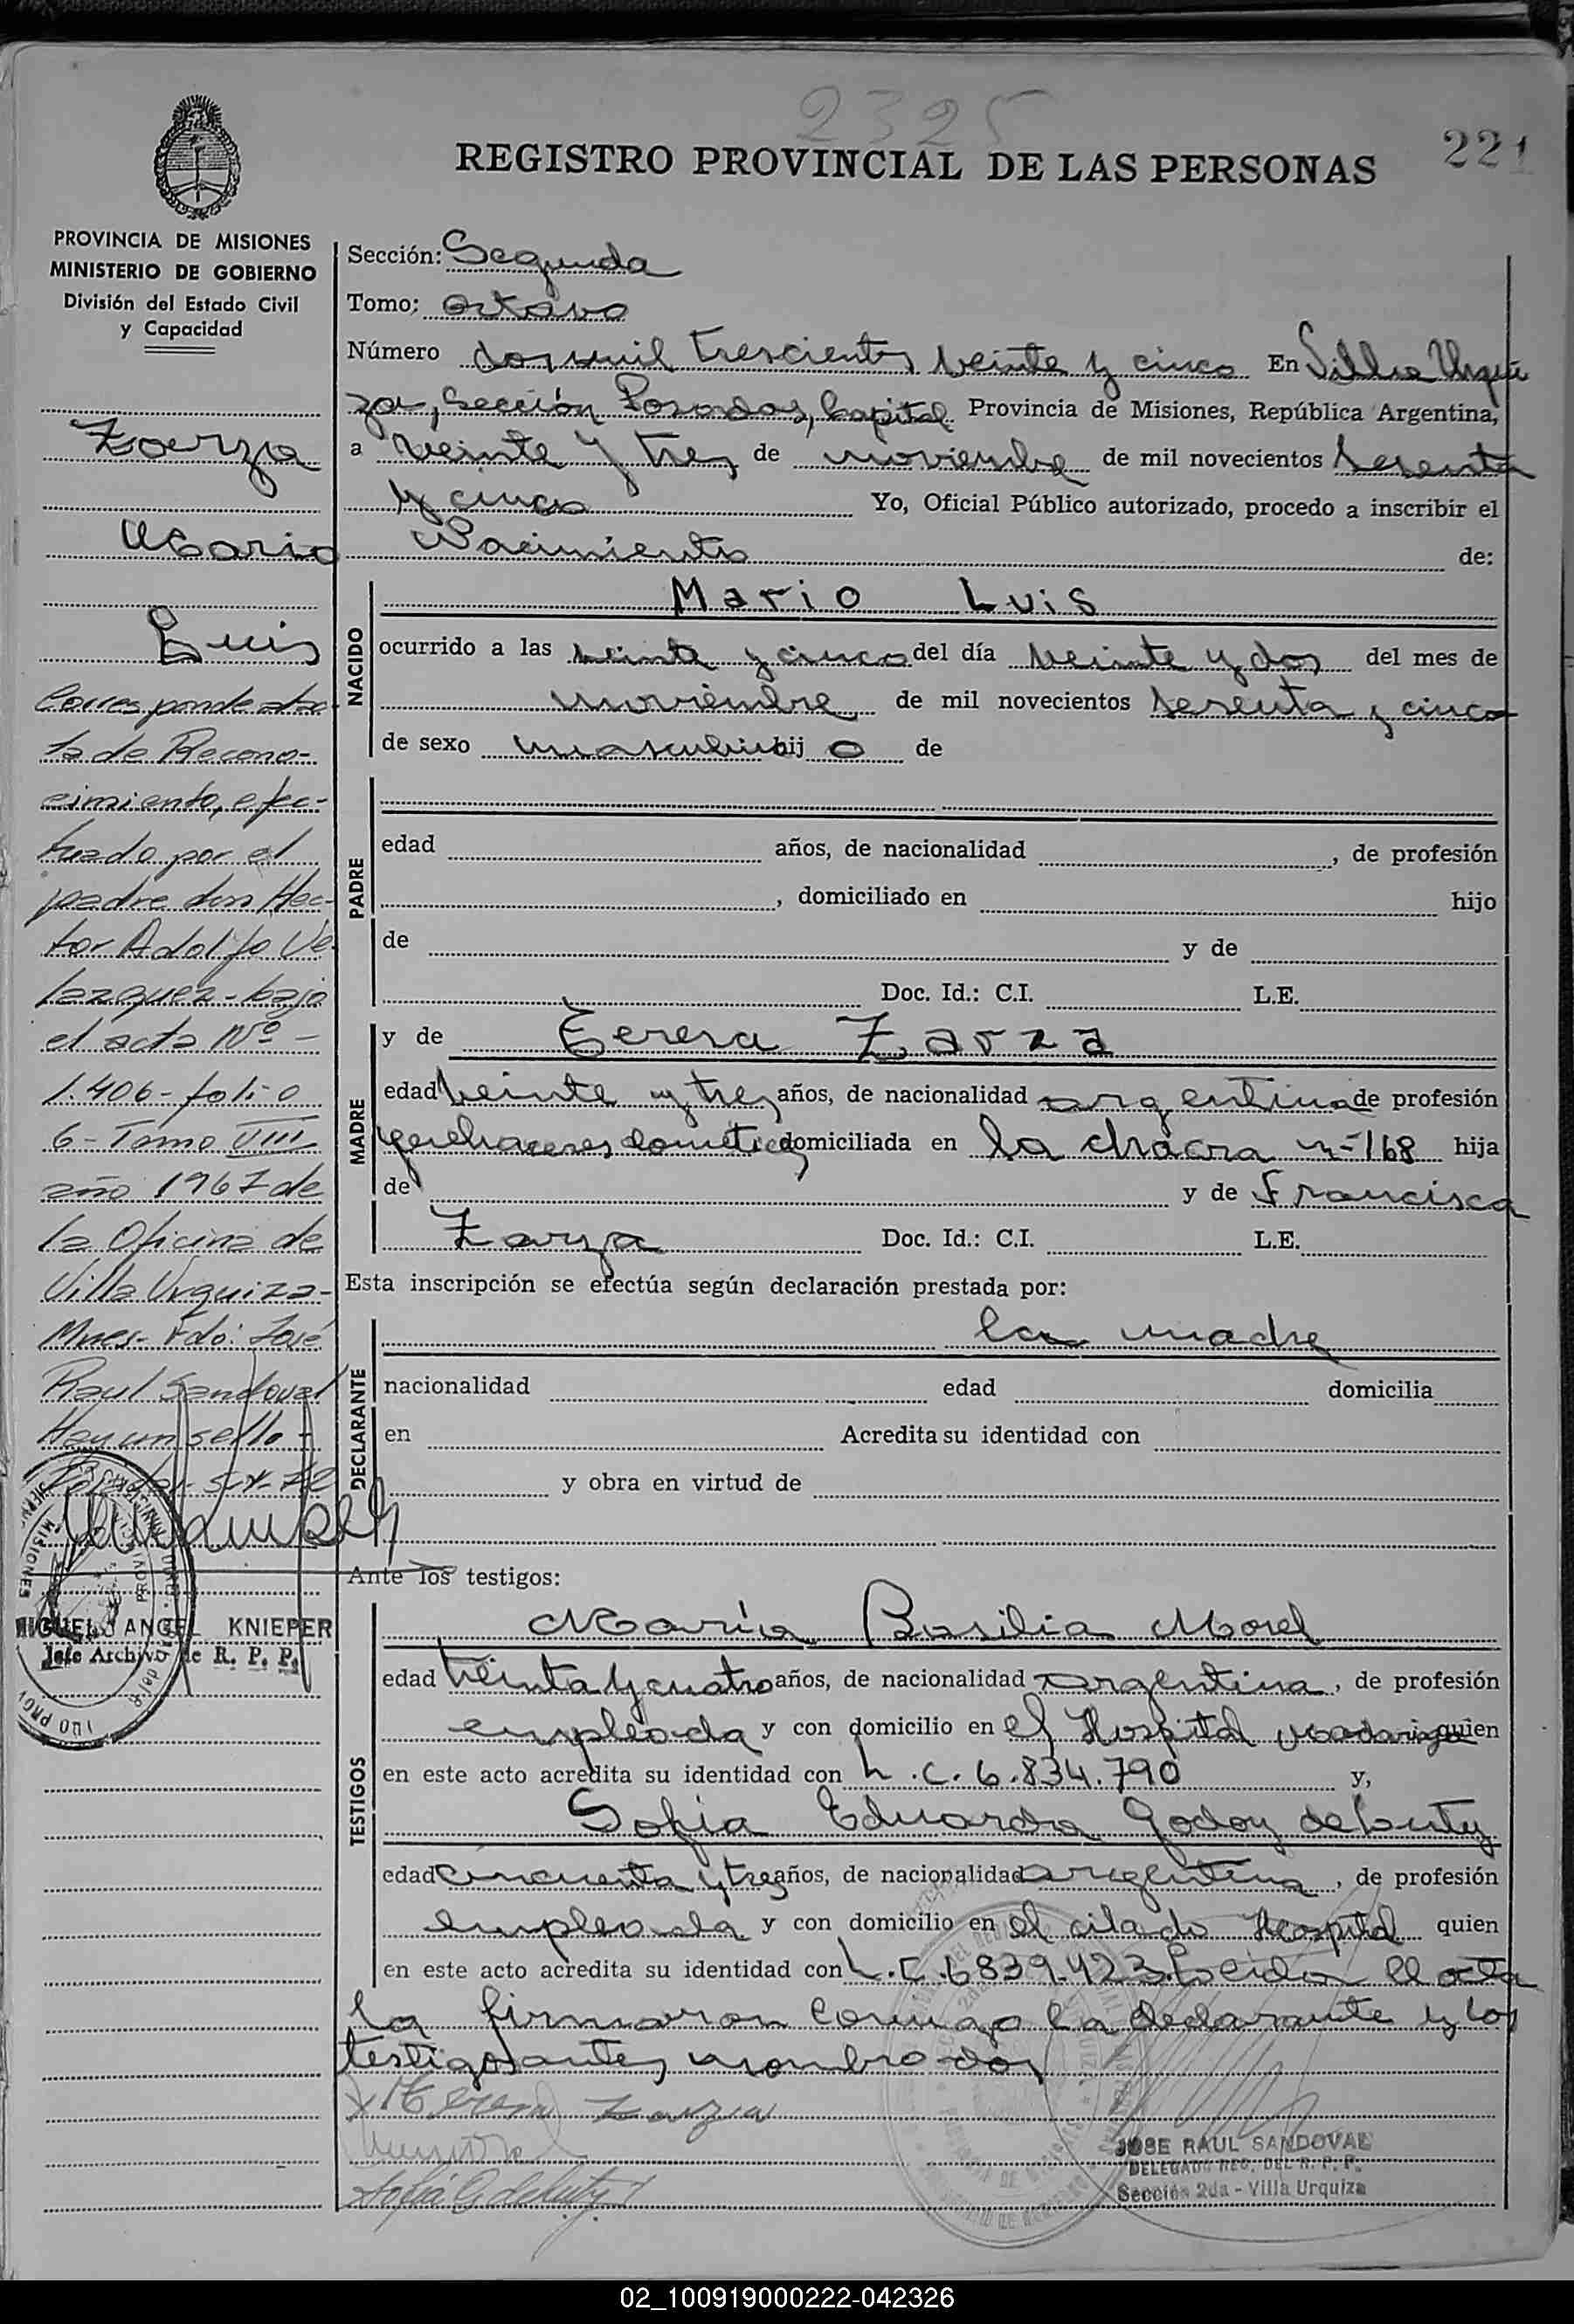 2325
221
REGISTRO PROVINCIAL DE LAS PERSONAS
PROVINCIA DE MISIONES
MINISTERIO DE GOBIERNO
División del Estado Civil
y Capacidad
Zarza
Mario
Luis
Corresponde ac
ta de Recono-
cimiento, efec-
tuado por el
padre don Hec-
tor Adolfo Ve
lazquez - bajo
el acta Nº -
1.406 - folio
6 - Tomo VIII
año 1967 de
la Oficina de
Villa Urquiza -
Mnes - Fdo: José
Raul Sandoval
Hay un sello -
MIGUEL ANGEL KNIEPER
Jefe Archivo de R. P. P.
Sección: Segunda
Tomo: octavo
Número dos mil trescientos veinte y cinco En Villa Urqui
za, Sección Posadas, Capital Provincia de Misiones, República Argentina,
a veinte y tres de noviembre de mil novecientos sesenta
y cinco Yo, Oficial Público autorizado, procedo a inscribir el
Nacimiento de:
NACIDO
Mario Luis
ocurrido a las veinte y cinco del día veinte y dos del mes de
noviembre de mil novecientos sesenta y cinco
de sexo masculino hij o de
PADRE
edad años, de nacionalidad , de profesión
, domiciliado en hijo
de y de
Doc. Id.: C.I. L.E.
MADRE
y de Teresa Zarza
edad veinte y tres años, de nacionalidad argentina de profesión
quehaceres dometicos domiciliada en la chacra nº 168 hija
de y de Francisca
Zarza Doc. Id.: C.I. L.E.
Esta inscripción se efectúa según declaración prestada por:
DECLARANTE
la madre
nacionalidad edad domicilia
en Acredita su identidad con
y obra en virtud de
Ante los testigos:
TESTIGOS
María Basilia Morel
edad treinta y cuatro años, de nacionalidad argentina, de profesión
empleada y con domicilio en el Hospital Madariaga quien
en este acto acredita su identidad con L.C. 6.834.790 y,
Sofia Eduarda Godoy de
edad cincuenta y tres años, de nacionalidad argentina, de profesión
empleada y con domicilio en el citado Hospital quien
en este acto acredita su identidad con L.C. 6839.423. Leida el acta
la firmaron conmigo la declarante y los
testigos antes nombrados
Teresa Zarza
Sofia G de
JOSE RAUL SANDOVAL
DELEGADO REG. DEL R. P. P.
Sección 2da - Villa Urquiza
02_100919000222-042326